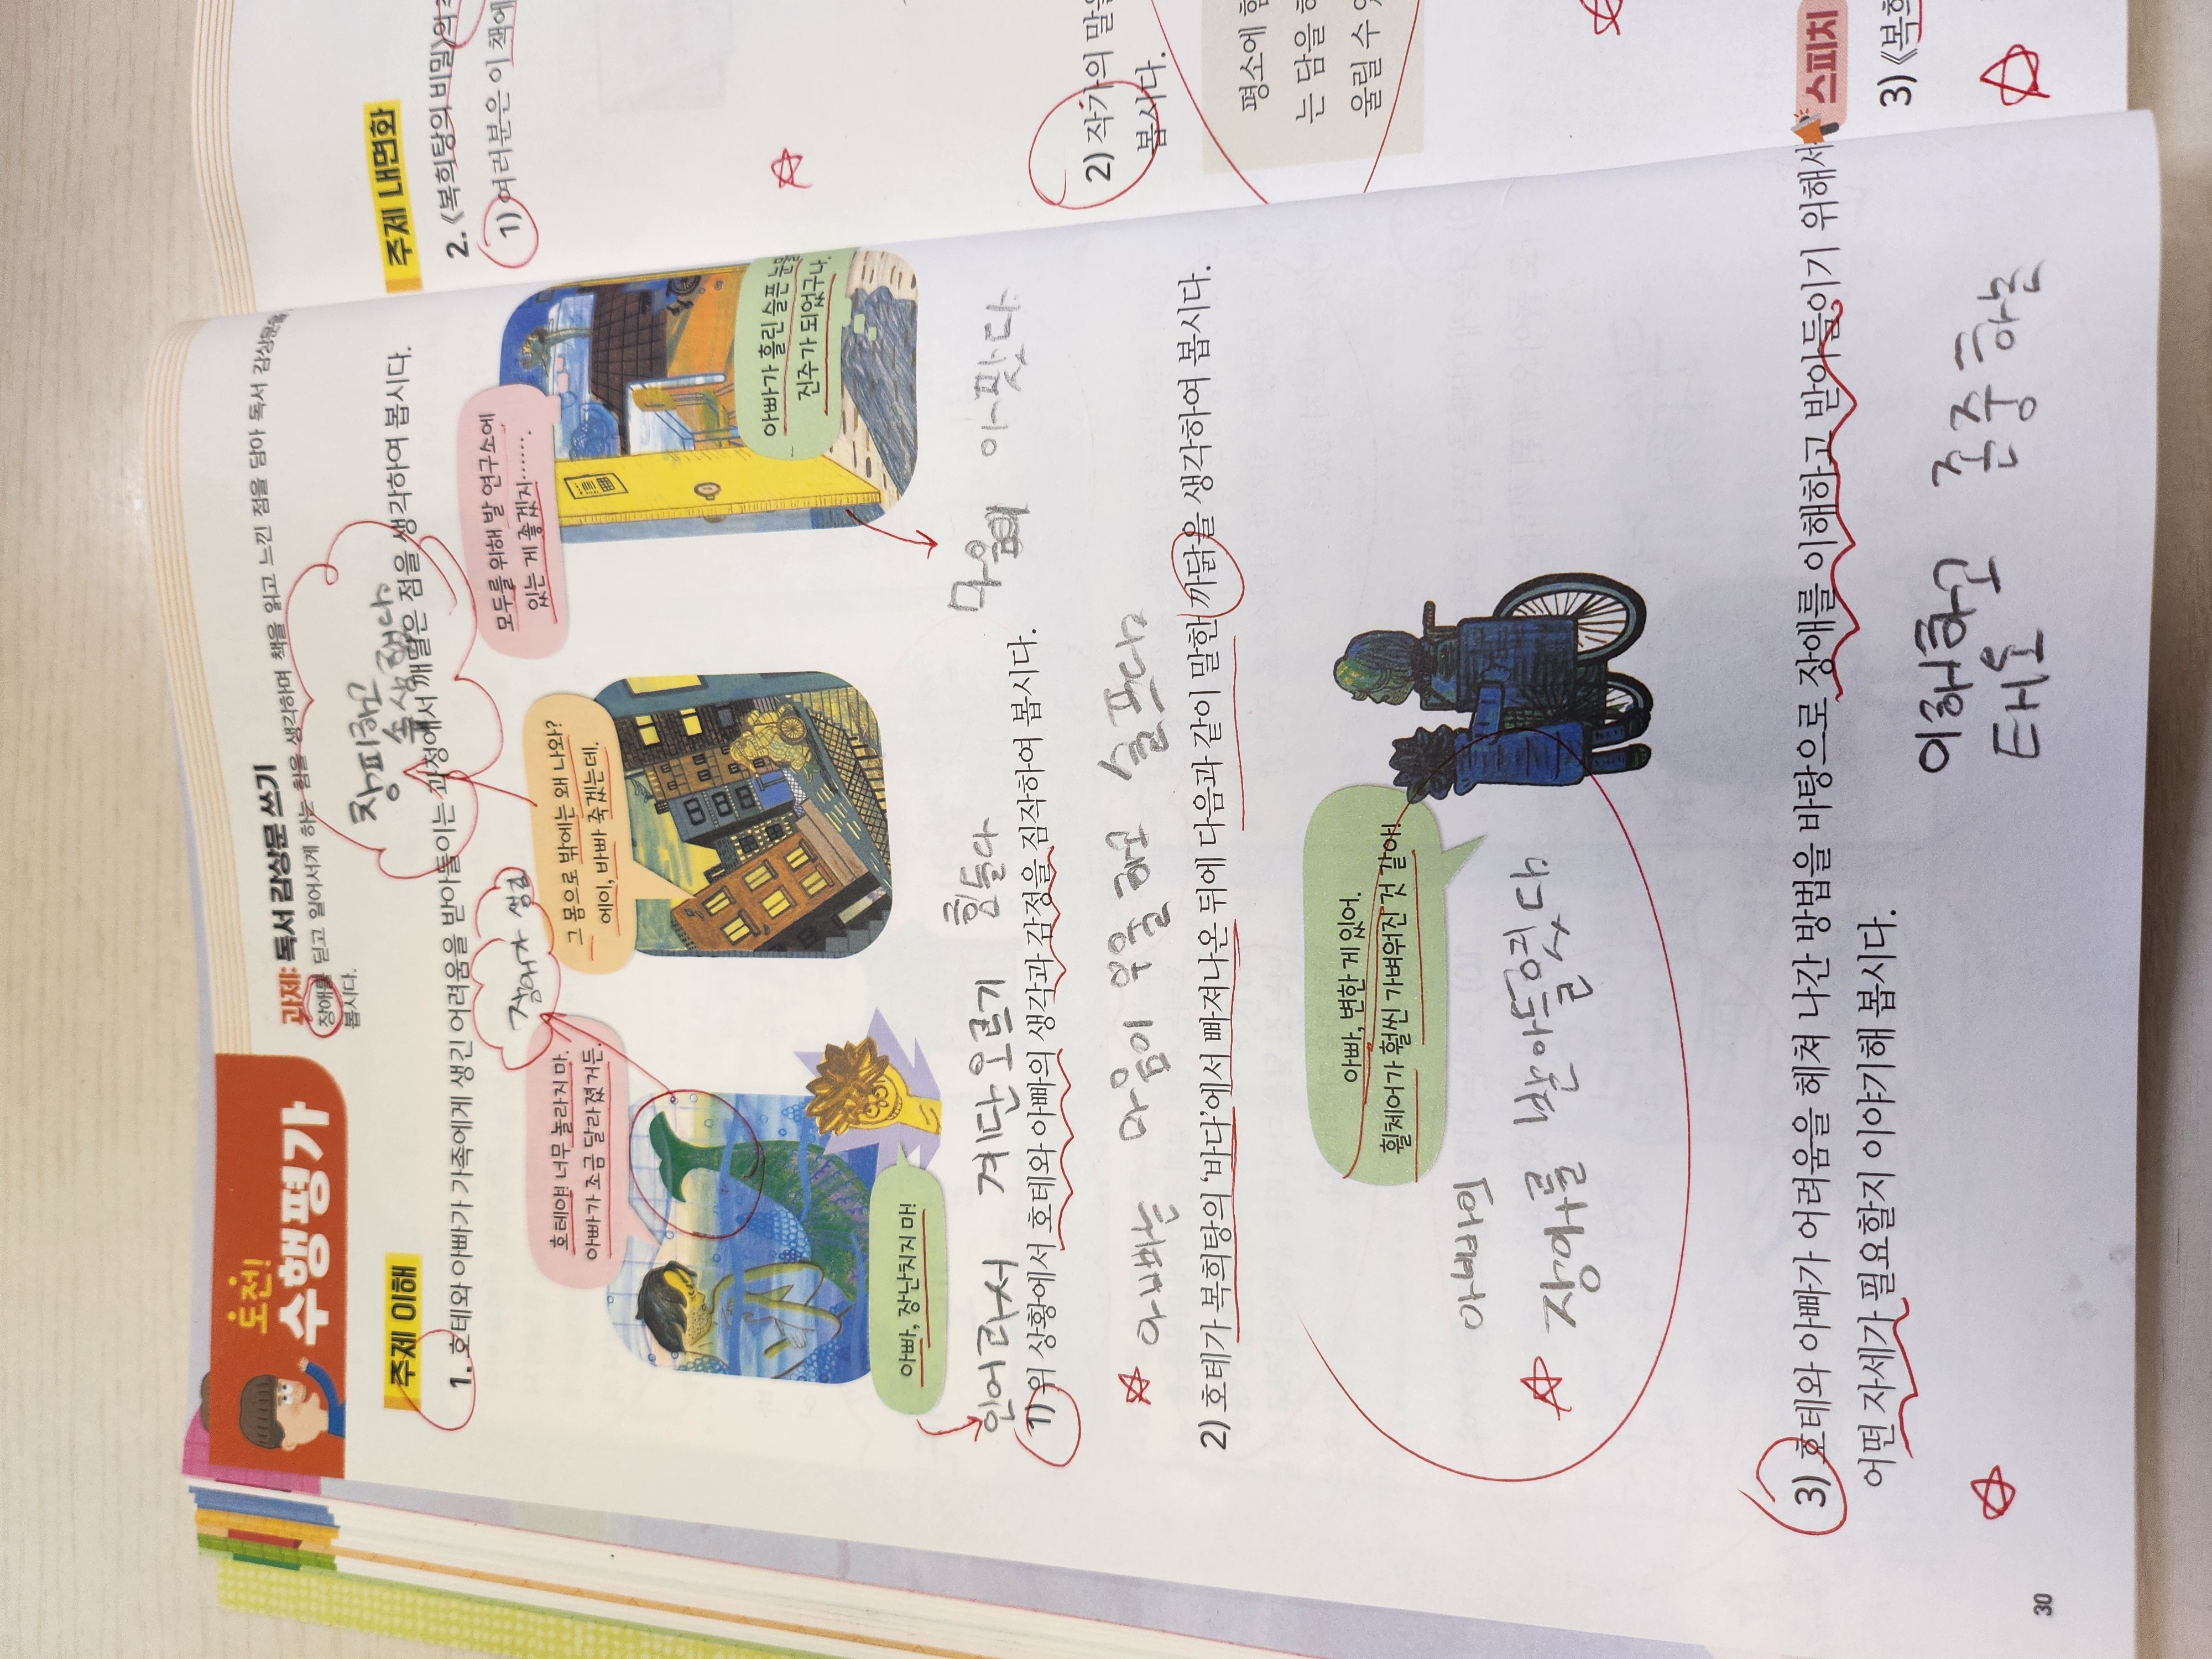 도전!
수행평가
과제: 독서 감상문 쓰기
장애를 딛고 일어서게 하는 힘을 생각하며 책을 읽고 느낀 점을 담아 독서 감상문을
봅시다.
주제 이해
창피하고
속상했다
1. 호테와 아빠가 가족에게 생긴 어려움을 받아들이는 과정에서 깨달은 점을 생각하여 봅시다.
장애가 생김
호테야! 너무 놀라지 마.
아빠가 조금 달라졌거든.
아빠, 장난치지 마!
그 몸으로 밖에는 왜 나와?
에이, 바빠 죽겠는데.
모두를 위해 발 연구소에
있는 게 좋겠지…….
아빠가 흘린 슬픈 눈물
진주가 되었구나.
인어라서 계단오르기 힘들다
마음 아팠다
1) 위 상황에서 호테와 아빠의 생각과 감정을 짐작하여 봅시다.
아빠는 마음이 우울하고 슬프다
2) 호테가 복희탕의 '바다'에서 빠져나온 뒤에 다음과 같이 말한 까닭을 생각하여 봅시다.
아빠, 변한 게 있어.
휠체어가 훨씬 가벼워진 것 같아!
아빠의
장애를 받아들였다
3) 호테와 아빠가 어려움을 헤쳐 나간 방법을 바탕으로 장애를 이해하고 받아들이기 위해서
어떤 자세가 필요할지 이야기해 봅시다.
이해하고 존중하는
태도
30
주제 내면화
2. 《복희탕의 비밀》의
1) 여러분은 이 책에
2) 작가의 말을
봅시다.
평소에
는 담을
울릴 수
스피치
3) 《복희